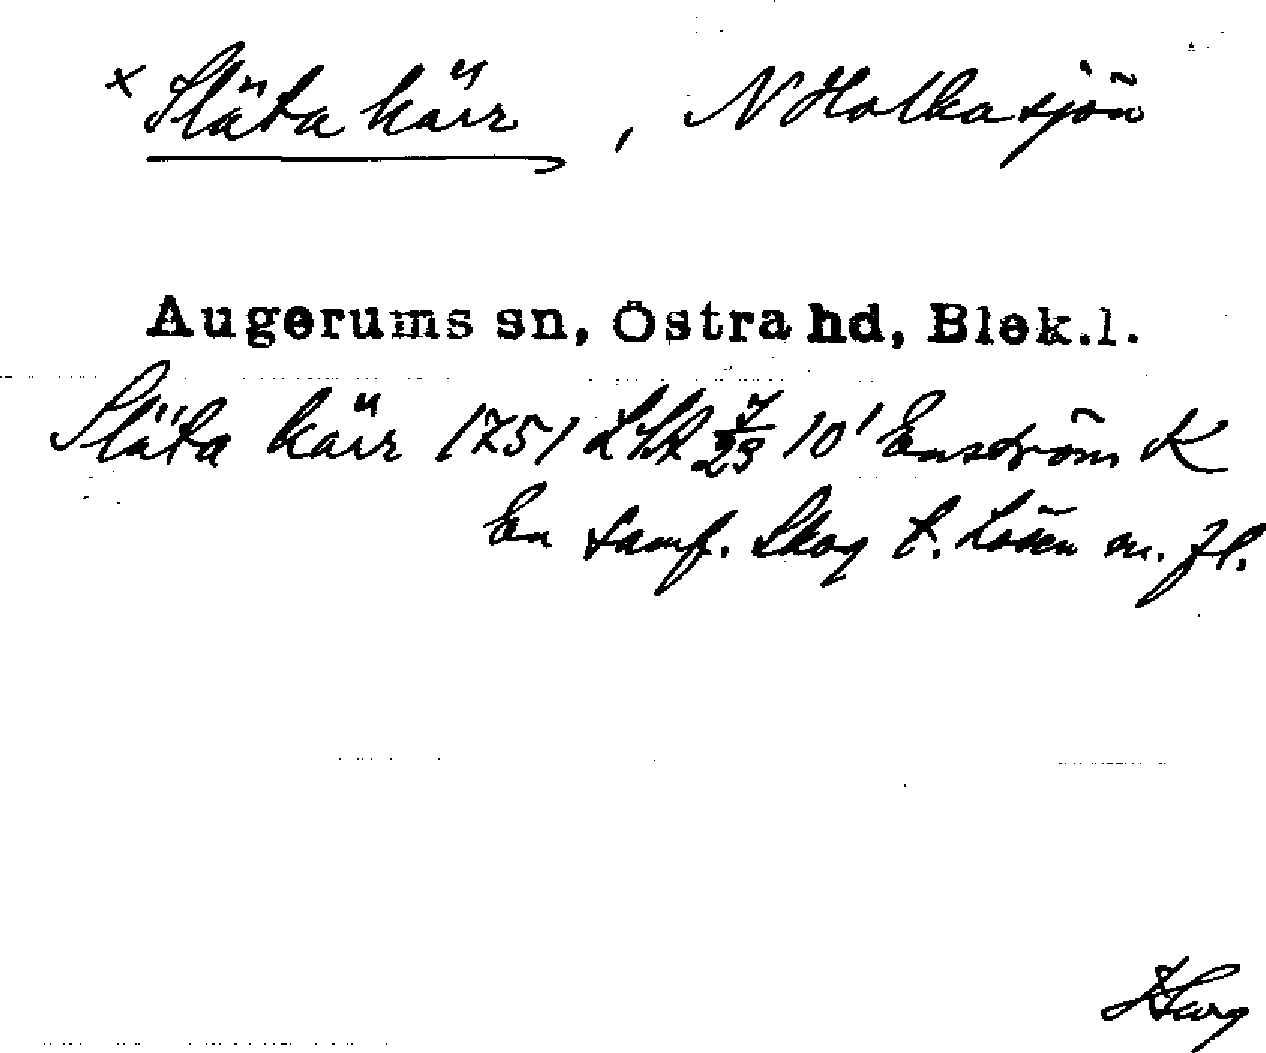 × Släta kärr, N Holkasjön
Augerums sn, Östra hd, Blek.l.
Släta kärr 1751 LSA 7/23 10' Enström K
En samf. Skog t. Lösen m. fl.